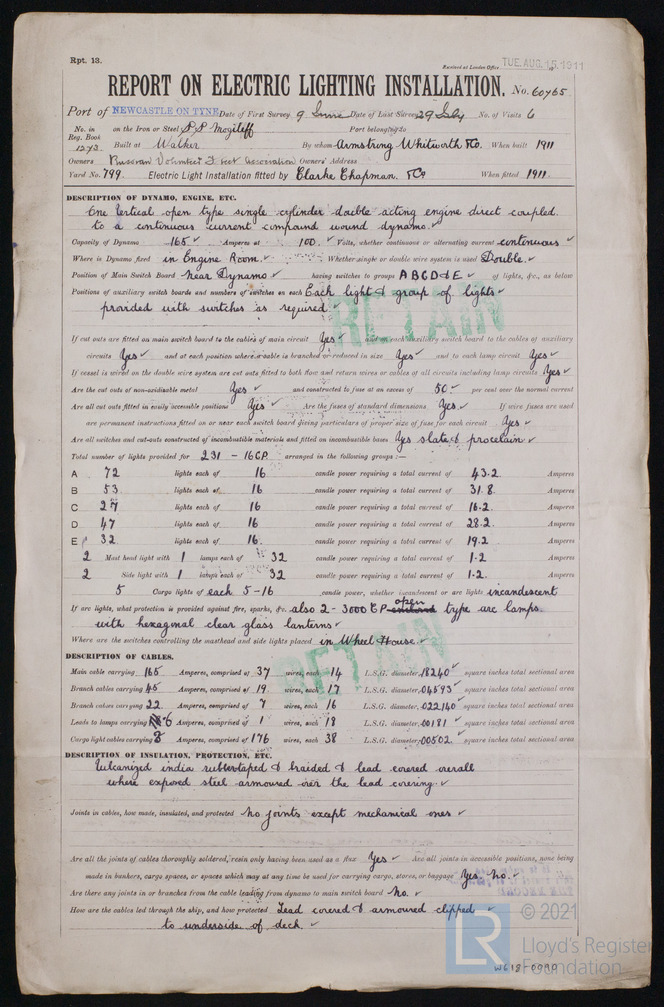 Rpt. 13.
Received at London Office TUE. AUG. 15. 1911
REPORT ON ELECTRIC LIGHTING INSTALLATION. No. 60765
Port of NEWCASTLE ON TYNE Date of First Survey 9 June Date of Last Survey 29 July No. of Visits 6
No. in Reg. Book 1273 on the Iron or Steel S.S. Mogileff Port belonging to
Built at Walker By whom Armstrong Whitworth & Co. When built 1911
Owners Russian Volunteer Fleet Association Owners' Address
Yard No. 799. Electric Light Installation fitted by Clarke Chapman. & Co When fitted 1911.
DESCRIPTION OF DYNAMO, ENGINE, ETC.
One vertical open type single cylinder double acting engine direct coupled
to a continuous current compound wound dynamo.
Capacity of Dynamo 165 Amperes at 100. Volts, whether continuous or alternating current continuous
Where is Dynamo fixed in Engine Room. Whether single or double wire system is used Double.
Position of Main Switch Board near Dynamo having switches to groups A B C D & E of lights, &c., as below
Positions of auxiliary switch boards and numbers of switches on each Each light & group of lights
provided with switches as required.
RETAIN
If cut outs are fitted on main switch board to the cables of main circuit Yes and on each auxiliary switch board to the cables of auxiliary
circuits Yes and at each position where a cable is branched or reduced in size Yes and to each lamp circuit Yes
If vessel is wired on the double wire system are cut outs fitted to both flow and return wires or cables of all circuits including lamp circuits Yes
Are the cut outs of non-oxidizable metal Yes and constructed to fuse at an excess of 50 per cent over the normal current
Are all cut outs fitted in easily accessible positions Yes Are the fuses of standard dimensions Yes. If wire fuses are used
are permanent instructions fitted on or near each switch board giving particulars of proper size of fuse for each circuit Yes
Are all switches and cut-outs constructed of incombustible materials and fitted on incombustible bases Yes slate & procelain
Total number of lights provided for 231 - 16CP arranged in the following groups :—
A 72 lights each of 16 candle power requiring a total current of 43.2 Amperes
B 53 lights each of 16 candle power requiring a total current of 31.8 Amperes
C 27 lights each of 16 candle power requiring a total current of 16.2 Amperes
D 47 lights each of 16 candle power requiring a total current of 28.2 Amperes
E 32 lights each of 16 candle power requiring a total current of 19.2 Amperes
2 Mast head light with 1 lamps each of 32 candle power requiring a total current of 1.2 Amperes
2 Side light with 1 lamps each of 32 candle power requiring a total current of 1.2. Amperes
5 Cargo lights of each 5-16 candle power, whether incandescent or arc lights incandescent
If arc lights, what protection is provided against fire, sparks, &c. also 2 - 3000 CP open type arc lamps
with hexagonal clear glass lanterns
Where are the switches controlling the masthead and side lights placed in Wheel House.
RETAIN
DESCRIPTION OF CABLES.
Main cable carrying 165 Amperes, comprised of 37 wires, each 14 L.S.G. diameter, .18240 square inches total sectional area
Branch cables carrying 45 Amperes, comprised of 19 wires, each 17 L.S.G. diameter, .04593 square inches total sectional area
Branch cables carrying 22 Amperes, comprised of 7 wires, each 16 L.S.G. diameter, .022140 square inches total sectional area
Leads to lamps carrying 6 Amperes, comprised of 1 wires, each 18 L.S.G. diameter, .00181 square inches total sectional area
Cargo light cables carrying 3 Amperes, comprised of 176 wires, each 38 L.S.G. diameter, .00502 square inches total sectional area
DESCRIPTION OF INSULATION, PROTECTION, ETC.
Vulcanized india rubber taped & braided & lead covered overall
where exposed steel armoured over the lead covering
Joints in cables, how made, insulated, and protected No joints except mechanical ones
Are all the joints of cables thoroughly soldered, resin only having been used as a flux Yes Are all joints in accessible positions, none being
made in bunkers, cargo spaces, or spaces which may at any time be used for carrying cargo, stores, or baggage Yes. No.
Are there any joints in or branches from the cable leading from dynamo to main switch board No.
How are the cables led through the ship, and how protected Lead covered & armoured clipped
to underside of deck.
© 2021
Lloyd's Register
Foundation
W618-0090